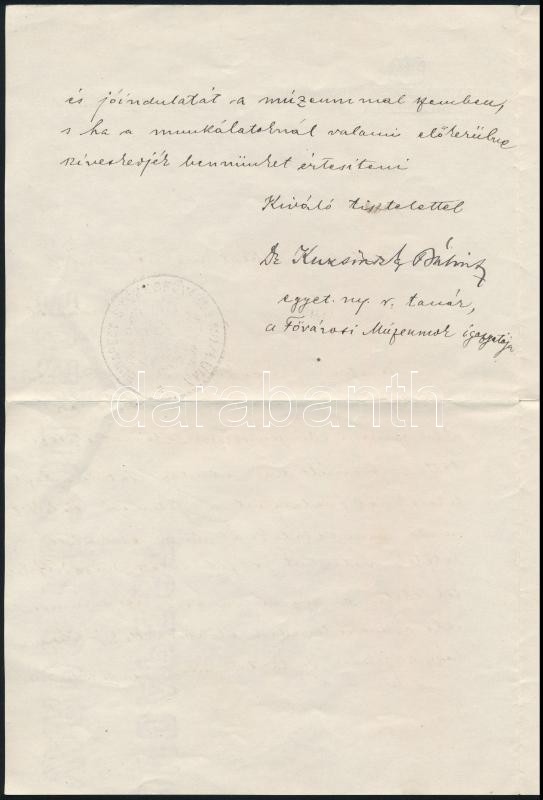 és jóindulatát a múzeummal szemben,
s ha a munkálatoknál valami előkerülne
szíveskedjék bennünket értesíteni
Kiváló tisztelettel
Dr Kuzsinszky Bálint
egyet. ny. r. tanár,
a Fővárosi Múzeumok igazgatója
darabanth